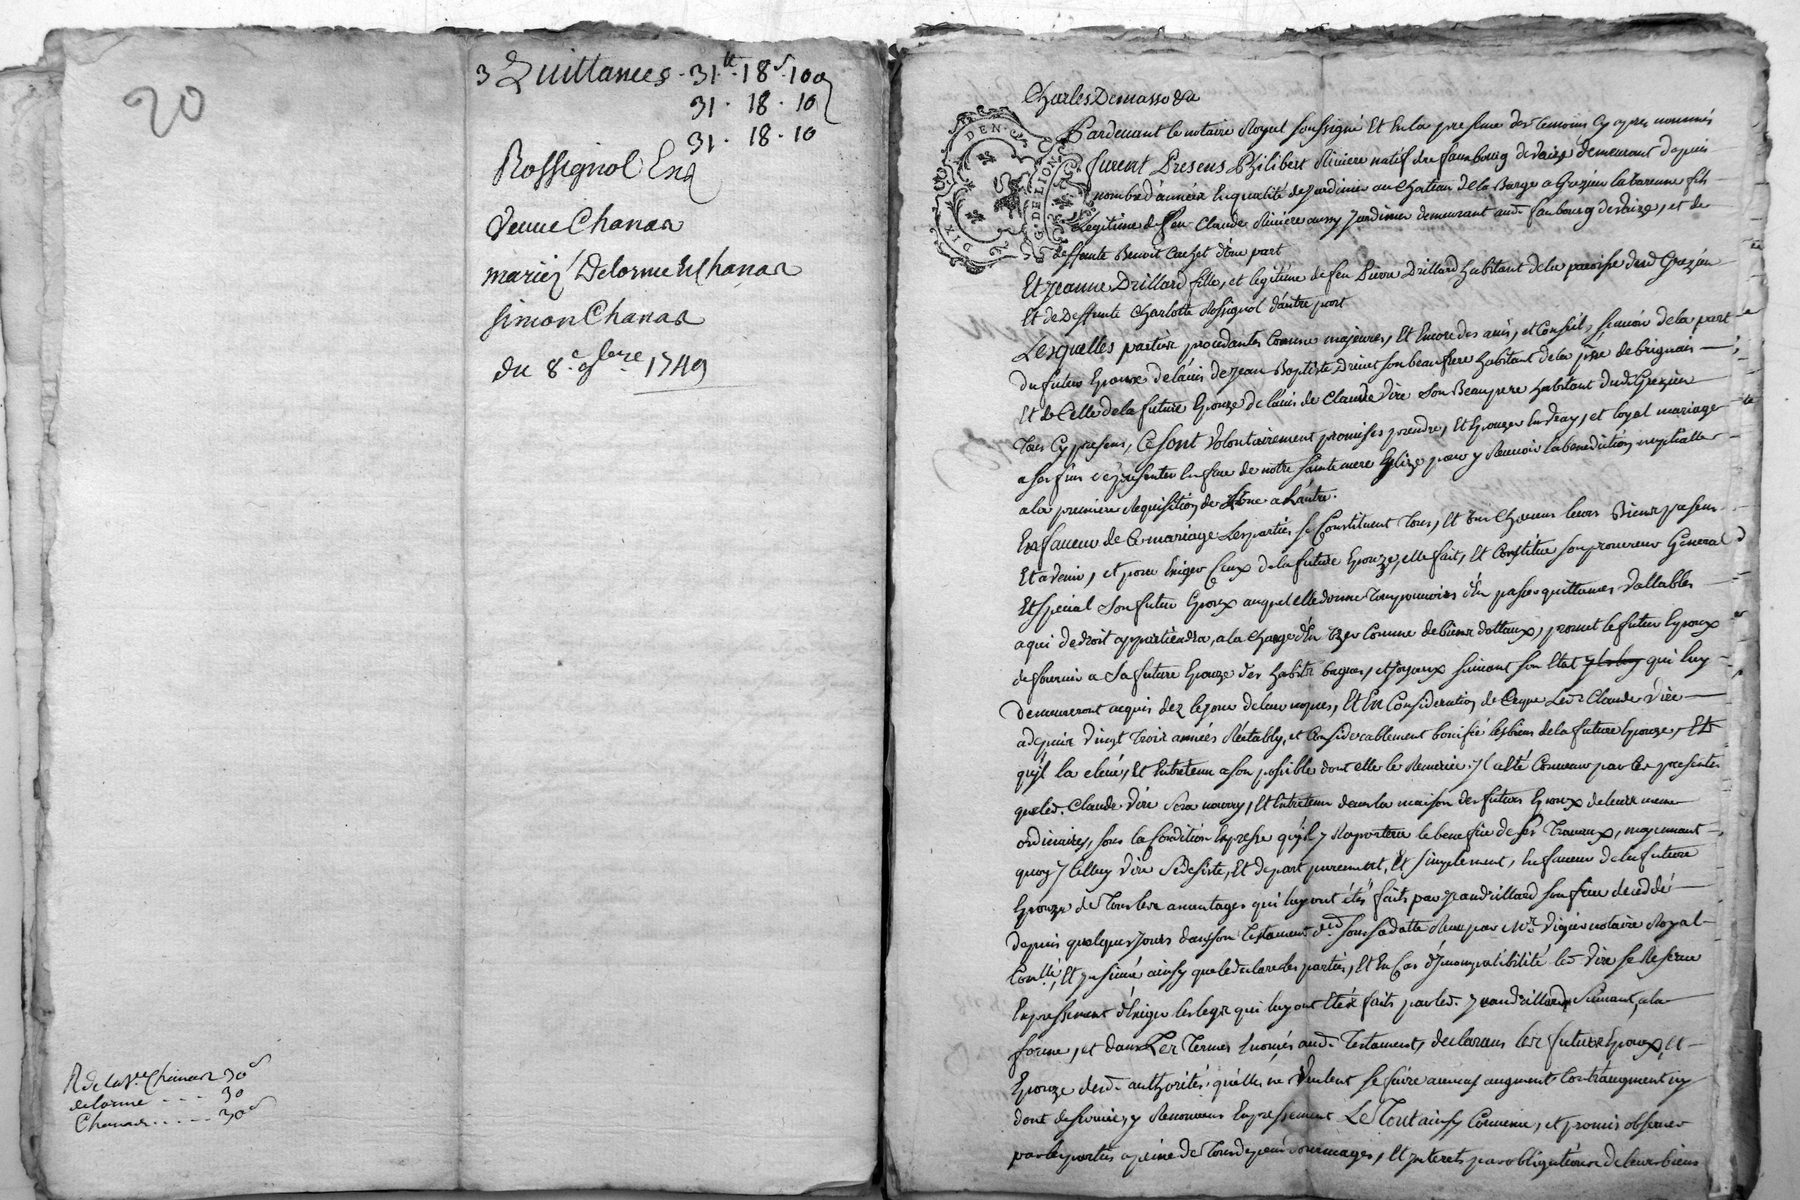 20
3 Quittances . 31.tt 18.s 10d
31 . 18 . 10
31 . 18 . 10
Rossignol Exa
Veuve Chanas
mariez Delorme et Chanas
Simon Chanas
du 8.e 9bre 1749
R de la Ve Chanas 30s
delorme - - - 30
Chanas - - - - 30s
Charles Demasso &a
G. DE LION
DIX DEN.
Pardevant le notaire Royal soussigné Et En la presence des temoins Cy apres nommés
furent Presens Philibert Riviere natif du fauxbourg de Vaize demeurant depuis
nombre d'années En qualité de Jardinier au Chateau de la Barge a Grezieu la Varenne fils
Legitime de feu Claude Riviere aussy Jardinier demeurant aud. fauxbourg de Vaize, et de
deffunte Benoit d'une part
Et Jeanne Drillard fille, et legitime de feu Pierre Drillard habitant de la paroisse dud Grezieu
Et de Deffunte Charlotte Rossignol d'autre part
Lesquelles parties procedantes Comme majeures, Et Encore des avis, et Conseils, sçavoir de la part
du futur Epoux de l'avis de Jean Baptiste son beaufrere habitant de la psse de brignais
Et de Celle de la future Epouze de l'avis de Claude Vire Son Beaupere habitant dud Grezieu
Tous Cy presens, Ce sont Volontairement promises prendre, Et Epouzer En vray, et loyal mariage
a ses fins s'e présenter En face de notre sainte mere Eglize pour y Recevoir la benediction nuptialle
a la premiere Requisition de L'une a L'autre.
En faveur de Ce mariage Les parties se Constituent Tous, Et Un Chacuns leurs Biens presens
Et avenir, et pour Exiger Ceux de la future Epouze, elle fait, Et Constitue son procureur General
Et Special Son futur Epoux auquel elle donne Tous pouvoirs d'En passer quittances Vallables
a qui de droit appartiendra, a la Charge d'En Uzer Comme de biens dottaux, promet le futur Epoux
de fournir a Sa future Epouze des habits bagues, et Joyaux suivant son Etat qui luy
demeureront acquis dez le jour de leur noces, Et En Consideration de Ceque Led. Claude Vire
a depuis Vingt Trois années Rétably, et Considerablement bonifié les biens de la future Epouze, Et
qu'il la elevé, Et Entretenu a son possible dont elle le Remercie. Il a Eté Convenu par Ces presentes
que led. Claude Vire Sera nourry, Et Entretenu dans la maison des futurs Epoux de leurs
ordinaires, sous la Condition Expresse qu'il y Raportera le benefice de ses Travaux, moyennant
quoy Icelluy Vire Se desiste, Et depart purement, Et simplement, En faveur de la future
Epouze de Tous les avantages qui luy ont étés faits par Jean drillard son frere decedé
depuis quelques Jours dans son Testament sous sa datte Receu par Mr. Vigier notaire Royal
Con.llé, Et ainsy que le declare les parties, Et En Cas d'Jncompatibilité led Vire se Reserve
Expressement d'Exiger les legs qui luy ont Etés faits par led. Jean drillard Suivant, a la
forme, et dans Les Termes Enoncés aud. Testament, declarans les futurs Epoux, et
Epouze dud. authorités, qu'elles ne Veulent se faire aucuns augment Contraugment ny
dont de survie, y Renoncans Expressement Le Tout ainsy Convenu, et promis observer
par les parties a peine de Tous depens dommages, Et Jnterets par obligations de leurs biens